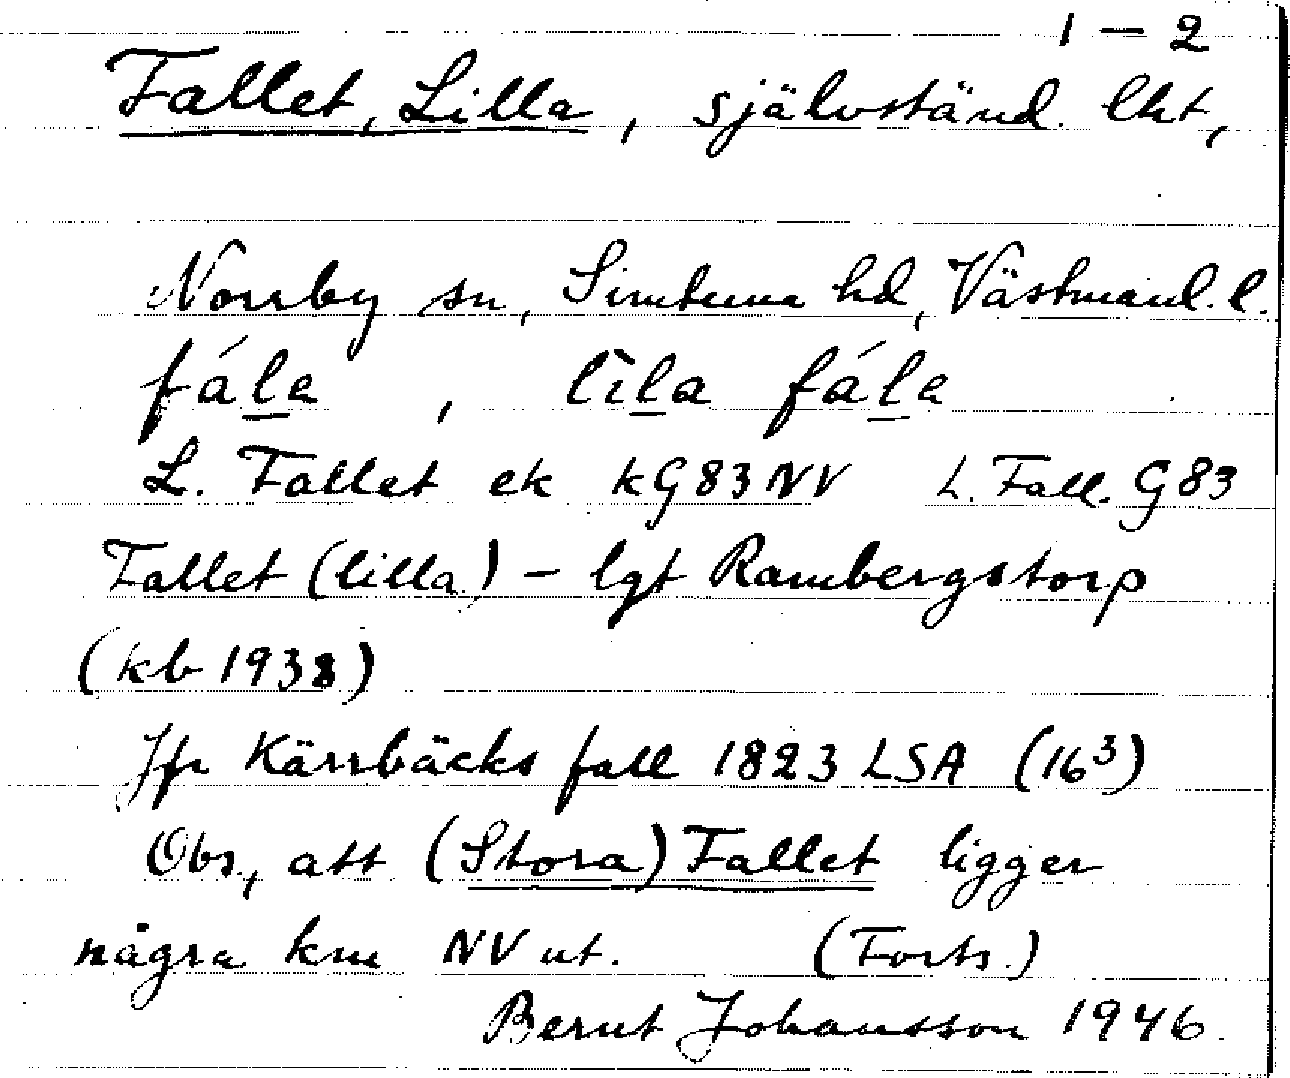 1 – 2
Fallet, Lilla, självständ. lht,
Norrby sn, Simtuna hd, Västmanl. l.
fála, lìla fála
L. Fallet ek kG83NV L. Fall. G83
Fallet (lilla) – lgt Rambergstorp
(kb 1938)
Jfr Kärrbäcks fall 1823 LSA (16³)
Obs, att (Stora) Fallet ligger
några km NV ut. (Forts.)
Bernt Johansson 1946.